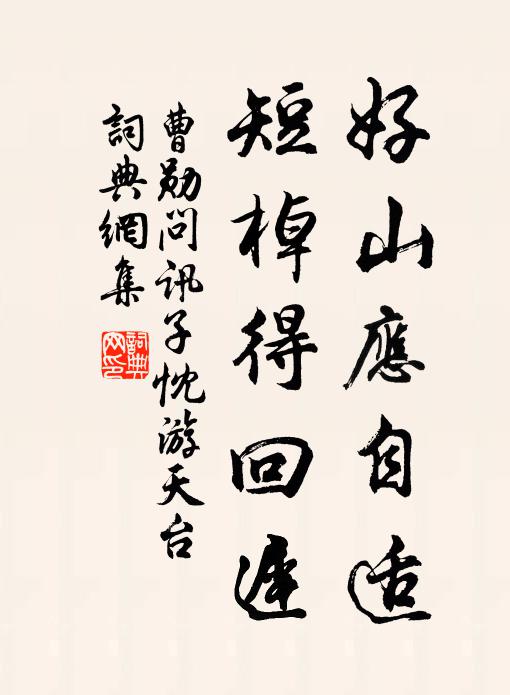 好山應自适
短棹得回遲
曹勋問訊子忱游天台
詞典網集
詞典網印